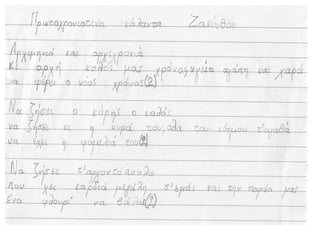 Πρωτοχρονιάτικα κάλαντα Ζακύνθου
Αρχιμηνιά και αρχιχρονιά
κι αρχή καλός μας χρόνος, υγεία αγάπη και χαρά
να φέρει ο νέος χρόνος(2)
Να ζήσει ο κύρης ο καλός
να ζήσει κι η κυρά του, όλα του κόσμου τ'αγαθά
να έχει η φαμελιά του(2)
Να ζήσει τ'αρχοντόπουλο
που χει καρδιά μεγάλη σ'εμάς και την παρέα μας
ένα φλουρί να βάλει(2)